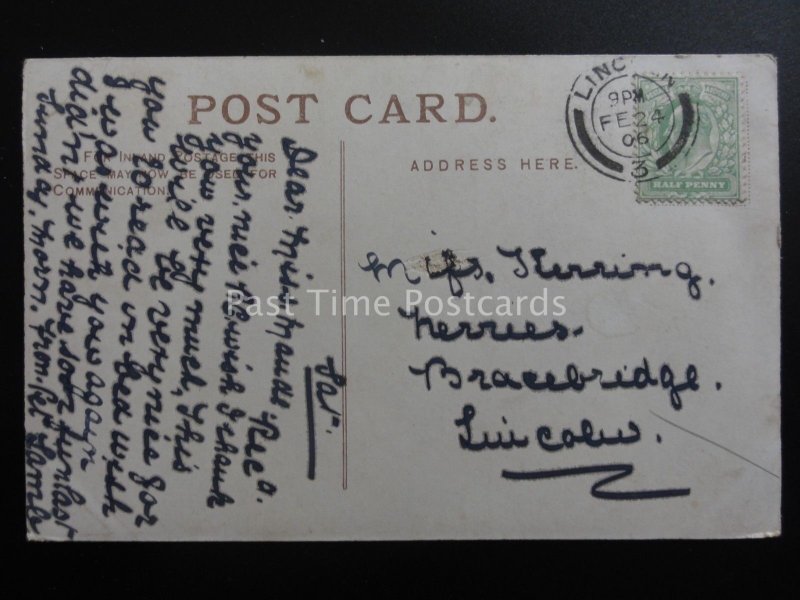 POST CARD.
FOR INLAND POSTAGE THIS
SPACE MAY NOW BE USED FOR
COMMUNICATION.
ADDRESS HERE.
LINCOLN
9PM
FE 24
06
HALF PENNY
Sat.
Dear Miss Maude. Rec'd.
your nice P.C. wish I thank
you very much, this
will be very nice for
you to read in bed with
was with you again
didn't we have fun last
Sunday, Morn. from
Miss, Herring.
Ferries.
Bracebridge.
Lincoln.
Past Time Postcards